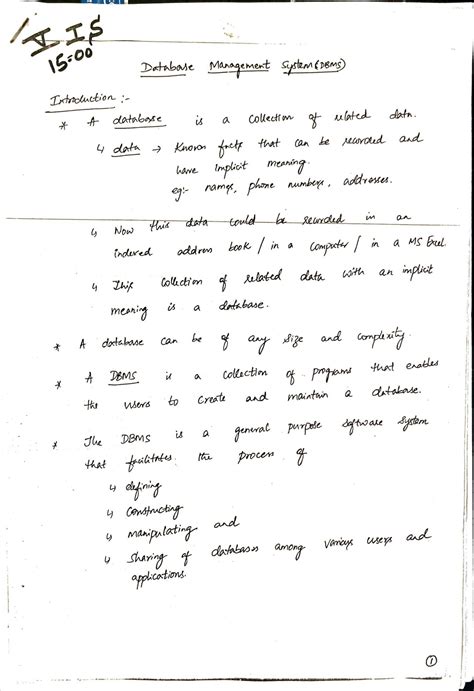 V IS
15:00
Database Management System (DBMS)
Introduction :-
* A database is a collection of related data.
↳ data → Known facts that can be recorded and
have implicit meaning.
eg:- names, phone numbers, addresses.
↳ Now this data could be recorded in an
indexed address book / in a computer / in a MS Excel.
↳ This collection of related data with an implicit
meaning is a database.
* A database can be of any size and complexity.
* A DBMS is a collection of programs that enables
the users to create and maintain a database.
* The DBMS is a general purpose software system
that facilitates the process of
↳ defining
↳ constructing
↳ manipulating and
↳ sharing of databases among various users and
applications.
1